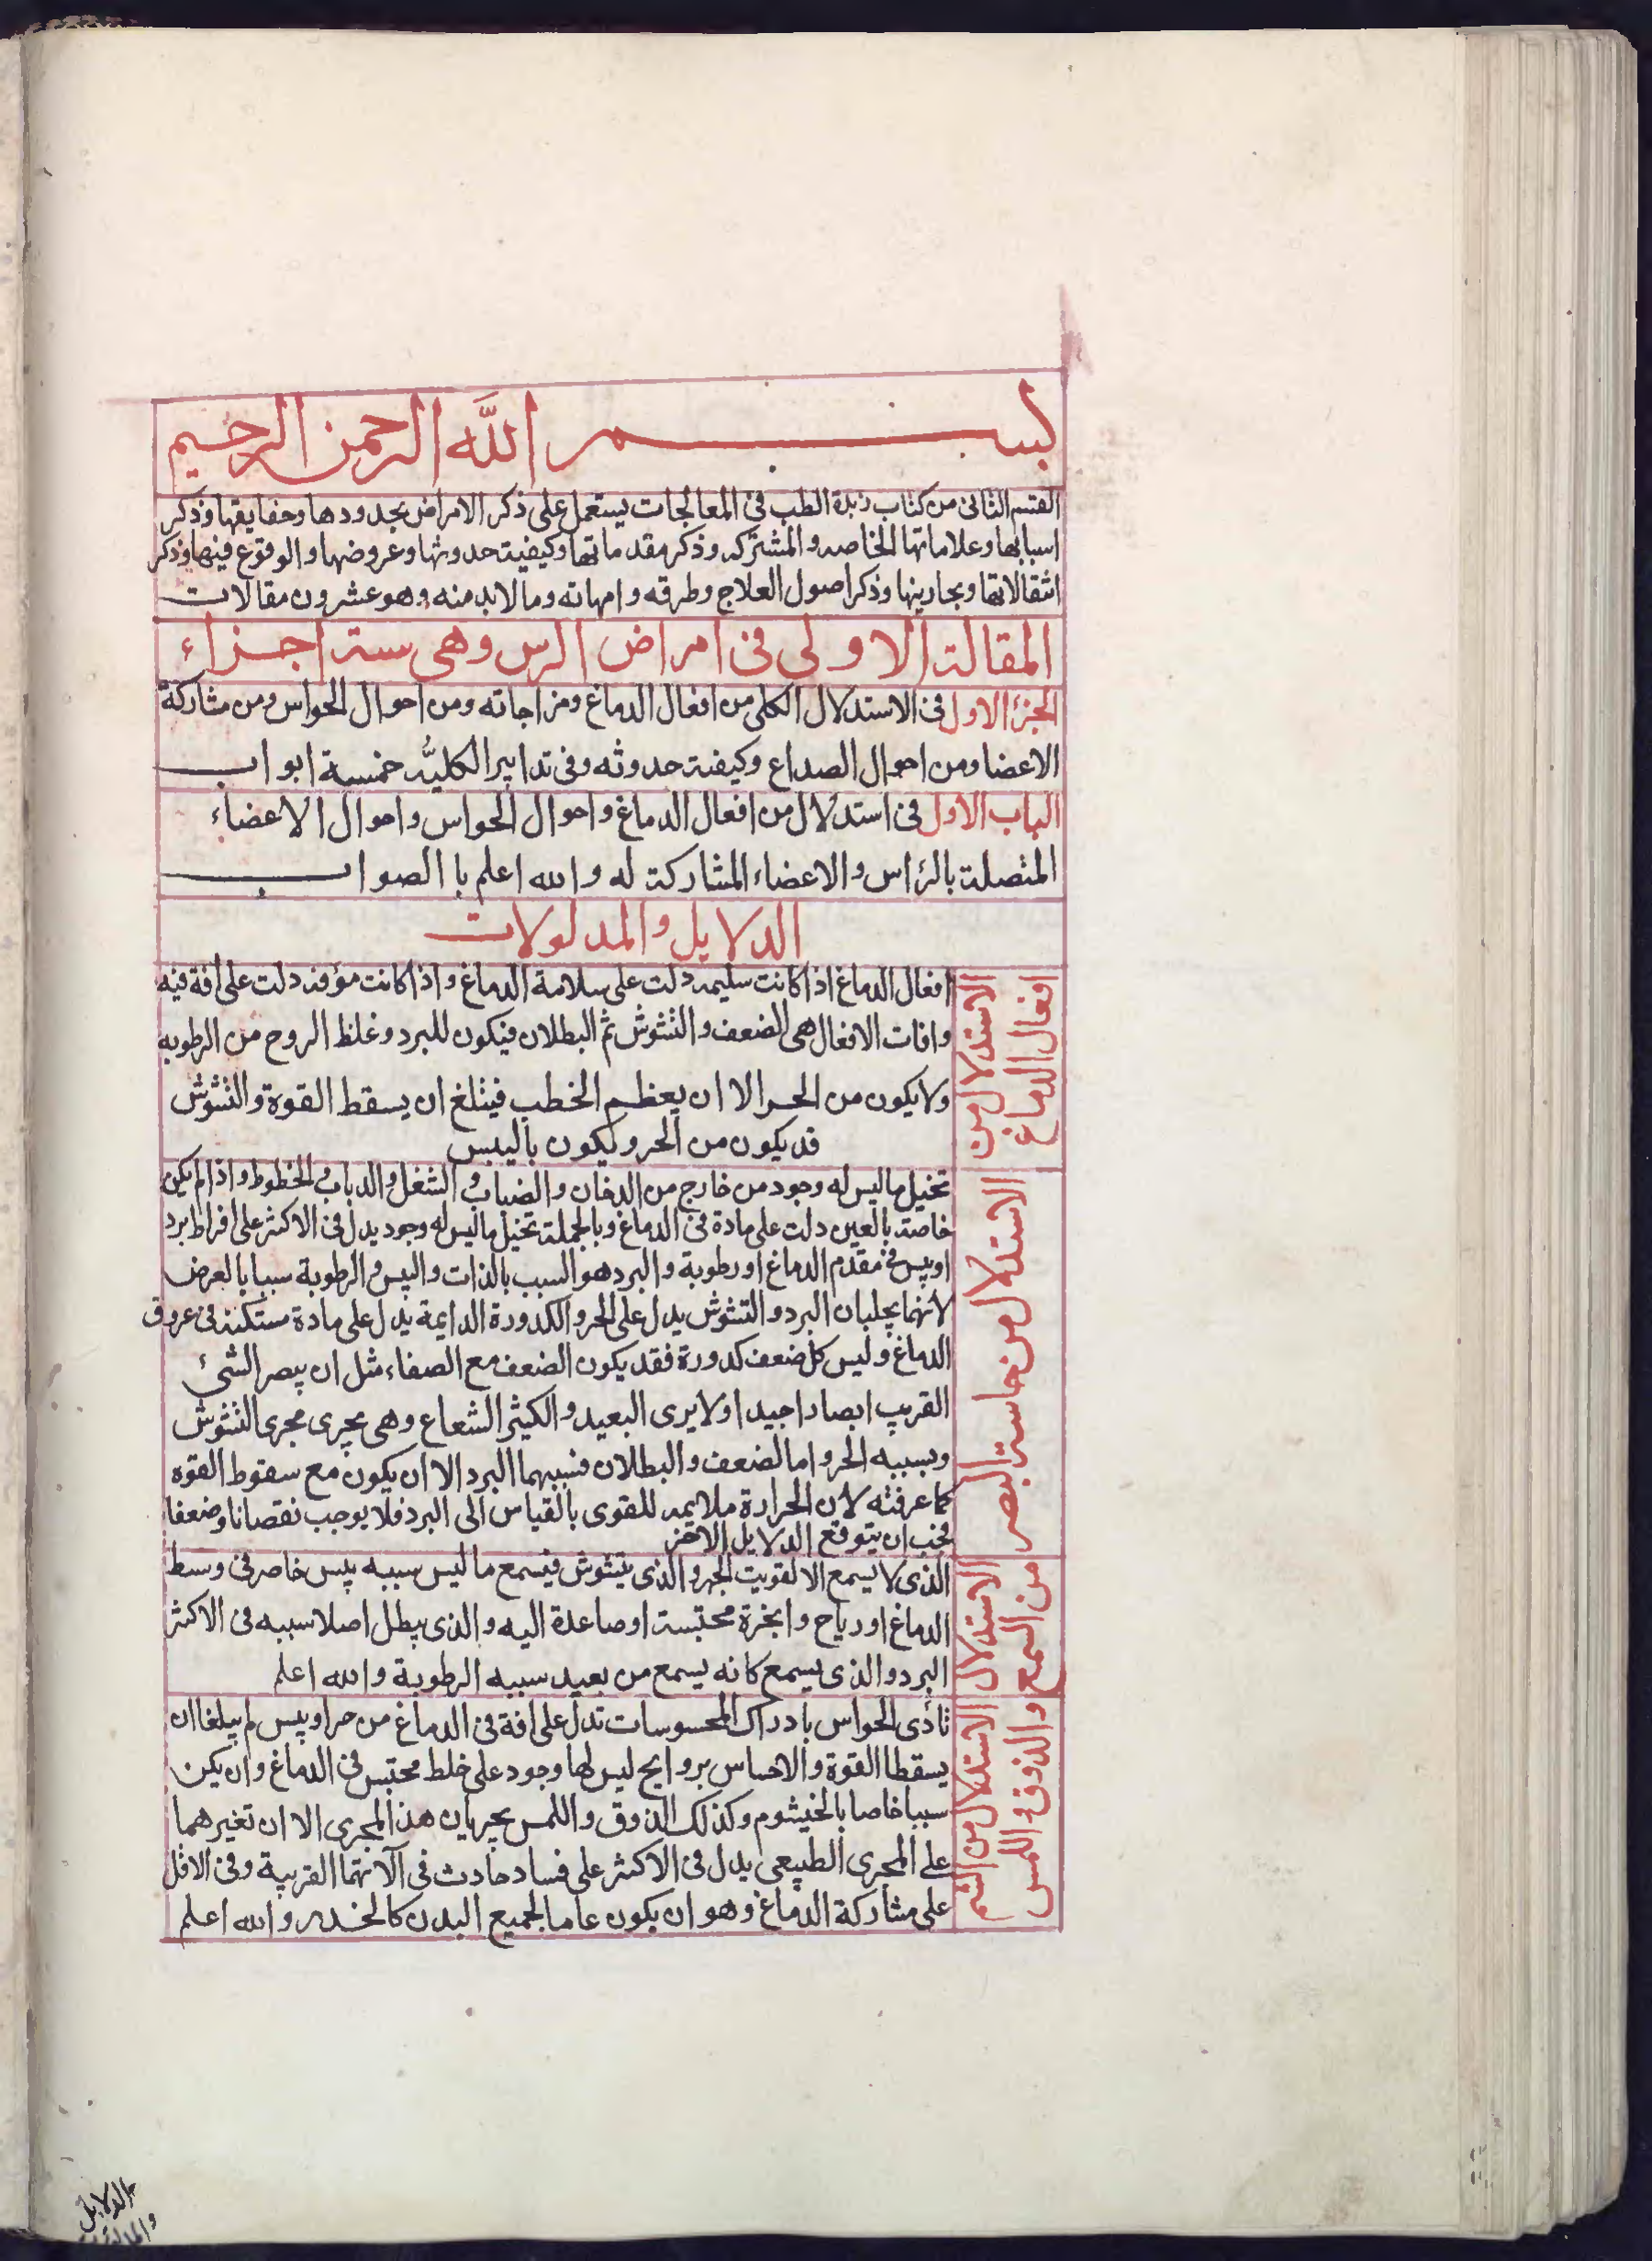 بســـم الله الرحمن الرحيم
القسم الثانى من كتاب زبدة الطب فى المعالجات يستعمل على ذكر الامراض بحدودها وحقايقها وذكر
اسبابها وعلاماتها الخاصه والمشتركه وذكر مقدماتها وكيفيت حدوثها وعروضها والوقوع فيها وذكر
انتقالاتها وبحارينها وذكر اصول العلاج وطرقه وامهاته وما لابد منه وهو عشرون مقالات
المقالة الاولى فى امراض الرس وهى ستة اجزاء
الجزء الاول فى الاستدلال الكلى من افعال الدماغ ومزاجاته ومن احوال الحواس ومن مشاركة
الاعضا ومن احوال الصداع وكيفيت حدوثه وفى تدابير الكليّه خمسة ابواب
الباب الاول فى استدلال من افعال الدماغ واحوال الحواس واحوال الاعضاء
المتصلة بالرٔاس والاعضاء المشاركة له والله اعلم با الصواب
الدلايل والمدلولات
الاستدلال من
افعال الدماغ
افعال الدماغ اذا كانت سليمه دلت على سلامة الدماغ واذا كانت مؤفه دلت على افة فيه
وافات الافعال هى الضعف والتشوش ثم البطلان فيكون للبرد وغلظ الروح من الرطوبه
ولا يكون من الحر الا ان يعظم الخطب فيتلغ ان يسقط القوة والتشوش
قد يكون من الحر ويكون باليبس
الاستدلال من حاسة البصر
تخيل ما ليس له وجود من خارج من الدخان والضباب والشغل والدباب والخطوط واذا لم يكن
خاصة بالعين دلت على مادة فى الدماغ وبالجملة تخيل ما ليس له وجود يدل فى الاكثر على افراط برد
او يبس فى مقدم الدماغ او رطوبة والبرد هو السبب بالذات واليبس والرطوبة سببا بالعرض
لانهما يجلبان البرد والتشوش يدل على الحر والكدورة الدايمة يدل على مادة مستكنة فى عروق
الدماغ وليس كل ضعف كدورة فقد يكون الضعف مع الصفاء مثل ان يبصر الشىء
القريب ابصارا جيدا ولا يرى البعيد والكثير الشعاع وهى يجرى مجرى التشوش
وبسببه الحر واما الضعف والبطلان فسببهما البرد الا ان يكون مع سقوط القوه
كما عرفته لان الحرارة ملايمه للقوى بالقياس الى البرد فلا يوجب نقصانا وضعفا
فيجب ان يتوقع الدلايل الاخر
الاستدلال
من السمع
الذى لا يسمع الا لقويت الجهر والذى يتشوش فيسمع ما ليس سببه يبس خاصر فى وسط
الدماغ او رياح وابخرة محتبسة او صاعدة اليه والذى يبطل اصلا سببه فى الاكثر
البرد والذى يسمع كانه يسمع من بعيد سببه الرطوبة والله اعلم
الاستدلال من الشم
والذوق واللمس
تأذى الحواس بادراك المحسوسات تدل على افة فى الدماغ من حر او يبس لم يبلغا ان
يسقطا القوة والاحساس بروايح ليس لها وجود على خلط محتبس فى الدماغ وان يكن
سببا خاصا بالخيشوم وكذلك الذوق واللمس يجريان هذ المجرى الا ان تغيرهما
على المجرى الطبيعى يدل فى الاكثر على فساد حادث فى آلاتهما القريبة وفى الاقل
على مشاركة الدماغ وهو ان يكون عاما لجميع البدن كالخدر والله اعلم
الدلايل